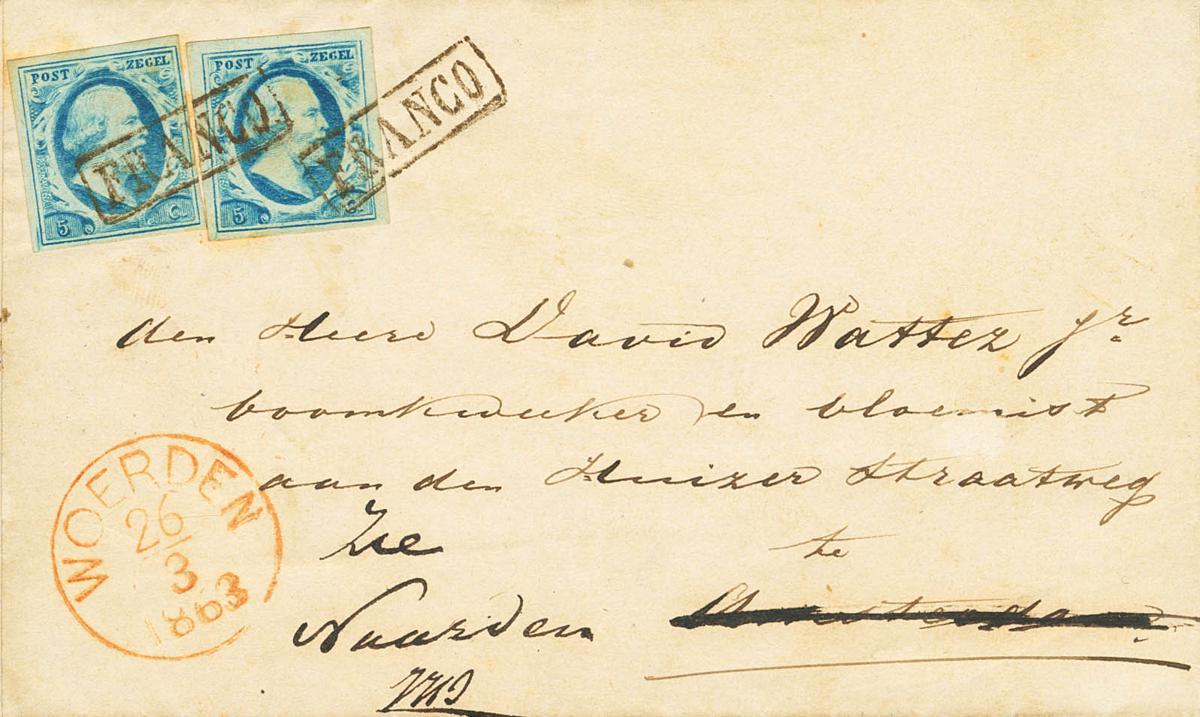 POST ZEGEL
5 C.
FRANCO
POST ZEGEL
5
FRANCO
den Heere David Wattez Jr.
boomkweeker en bloemist
aan den Huizer Straatweg
te
Amsterdam
Zie
Naarden
WOERDEN
26
3
1863